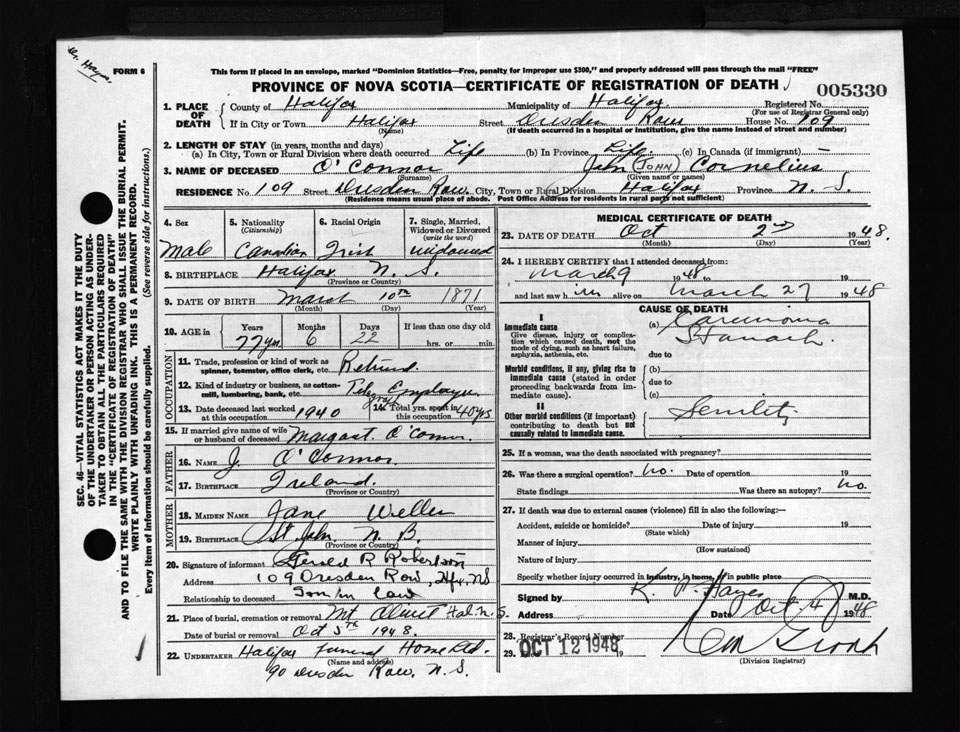 Dr. Hayes
FORM 6
This form if placed in an envelope, marked "Dominion Statistics—Free, penalty for improper use $300," and properly addressed will pass through the mail "FREE"
PROVINCE OF NOVA SCOTIA—CERTIFICATE OF REGISTRATION OF DEATH
005330
1. PLACE OF DEATH
County of Halifax Municipality of Halifax Registered No.
(For use of Registrar General only)
If in City or Town Halifax Street Dresden Row House No. 109
(Name) (If death occurred in a hospital or institution, give the name instead of street and number)
2. LENGTH OF STAY (in years, months and days)
(a) In City, Town or Rural Division where death occurred Life (b) In Province Life (c) In Canada (if immigrant)
3. NAME OF DECEASED O'Connor John (JOHN) Cornelius
(Surname) (Given name or names)
RESIDENCE No 109 Street Dresden Row City, Town or Rural Division Halifax Province N. S.
(Residence means usual place of abode. Post Office Address for residents in rural parts not sufficient)
4. Sex
Male
5. Nationality
(Citizenship)
Canadian
6. Racial Origin
Irish
7. Single, Married, Widowed or Divorced
(write the word)
widowed
8. BIRTHPLACE Halifax N. S.
(Province or Country)
9. DATE OF BIRTH March 10th 1871
(Month) (Day) (Year)
10. AGE in
Years Months Days If less than one day old
77 yrs. 6 22 hrs. or min.
OCCUPATION
11. Trade, profession or kind of work as
spinner, teamster, office clerk, etc. Retired.
12. Kind of industry or business, as cotton-
mill, lumbering, bank, etc. Telegraph Employee
13. Date deceased last worked
at this occupation 1940
14. Total yrs. spent in
this occupation 40 yrs
15. If married give name of wife
or husband of deceased Margaret O'Connor
FATHER
16. NAME J. O'Connor.
17. BIRTHPLACE Ireland.
(Province or Country)
MOTHER
18. MAIDEN NAME Jane Weller
19. BIRTHPLACE St John N. B.
(Province or Country)
20. Signature of informant Gerald R Robertson
Address 109 Dresden Row, Hfx, NS
Relationship to deceased Son in law
21. Place of burial, cremation or removal Mt Olivet Hal. N. S.
Date of burial or removal Oct 5th 1948.
22. UNDERTAKER Halifax Funeral Home Ltd.
(Name and address)
90 Dresden Row, N. S.
MEDICAL CERTIFICATE OF DEATH
23. DATE OF DEATH Oct 2nd 1948.
(Month) (Day) (Year)
24. I HEREBY CERTIFY that I attended deceased from:
March 9 1948 to 19
and last saw him alive on March 27 1948
CAUSE OF DEATH
I
Immediate cause
Give disease, injury or complication which caused death, not the mode of dying, such as heart failure, asphyxia, asthenia, etc.
(a) Carcinoma
Stomach.
due to
Morbid conditions, if any, giving rise to immediate cause (stated in order proceeding backwards from immediate cause).
(b)
due to
(c)
II
Other morbid conditions (if important) contributing to death but not causally related to immediate cause.
Senility
25. If a woman, was the death associated with pregnancy?
26. Was there a surgical operation? no. Date of operation 19
State findings Was there an autopsy? no.
27. If death was due to external causes (violence) fill in also the following:—
Accident, suicide or homicide? Date of injury 19
(State which)
Manner of injury
(How sustained)
Nature of injury
Specify whether injury occurred in industry, in home, or in public place
Signed by Hayes M.D.
Address Date Oct. 4 1948
28. Registrar's Record Number
29. OCT 12 1948 19
(Division Registrar)
SEC. 46—VITAL STATISTICS ACT MAKES IT THE DUTY
OF THE UNDERTAKER OR PERSON ACTING AS UNDER-
TAKER TO OBTAIN ALL THE PARTICULARS REQUIRED
IN THE "CERTIFICATE OF REGISTRATION OF DEATH"
AND TO FILE THE SAME WITH THE DIVISION REGISTRAR WHO SHALL ISSUE THE BURIAL PERMIT.
WRITE PLAINLY WITH UNFADING INK. THIS IS A PERMANENT RECORD.
Every item of information should be carefully supplied. (See reverse side for instructions.)